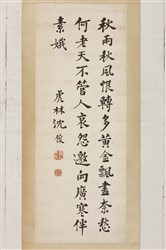 秋雨秋風恨轉多黃金飄盡奈愁
何老天不管人哀怨邀向廣寒伴
素娥
虎林沈